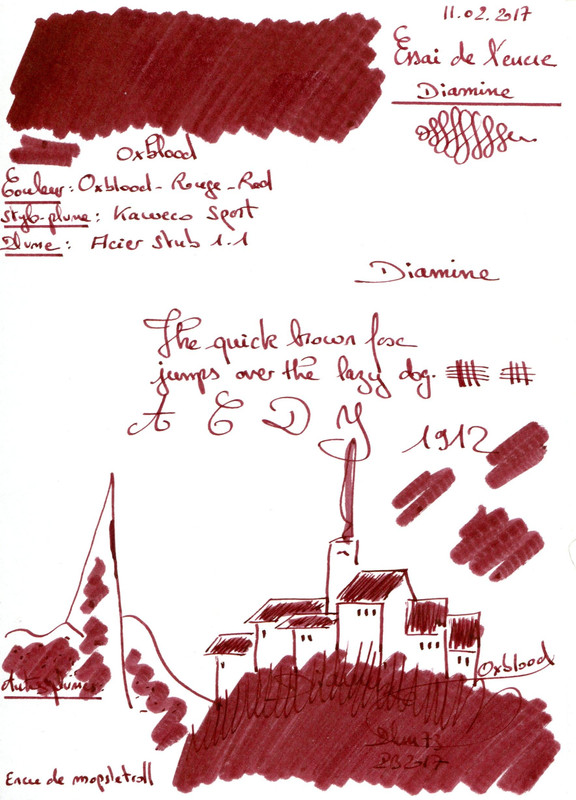 11.02.2017
Essai de l'encre
Diamine
Oxblood
Couleur : Oxblood - Rouge - Red
Stylo-plume : Kaweco Sport
Plume : Acier stub 1.1
Diamine
The quick brown fox
jumps over the lazy dog.
A E D Y
1912
Oxblood
PB2017
Encre de mopslatroll